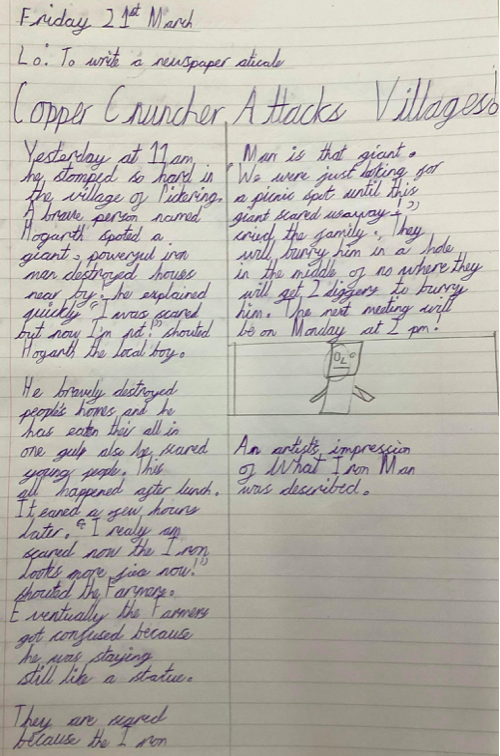 Friday 21st March
Lo: To write a newspaper aticale
Copper Cruncher Attacks Villages!
Yesterday at 11am,
he stomped so hard in
the village of Pickering.
A brave person named
Hogarth spoted a
giant, powerful iron
man destroyed houses
near by. he explained
quickly "I was scared
but now I'm not!" shouted
Hogarth the local boy.
He bravely destroyed
people's homes and he
has eaten their all in
one gulp also he scared
young people. This
all happened after lunch.
It eaned a few hours
later. "I realy am
scared now the Iron
looks more now!"
shouted the Farmers.
Eventually the Farmers
got confused because
he was staying
still like a statue.
They are scared
because the Iron
Man is that giant.
We were just loking for
a picnic spot until this
giant scared us away!"
cried the family. They
will burry him in a hole
in the middle of no where they
will get 2 diggers to burry
him. The next meeting will
be on Monday at 2 pm!
An artist's impression
of What Iron Man
was described.